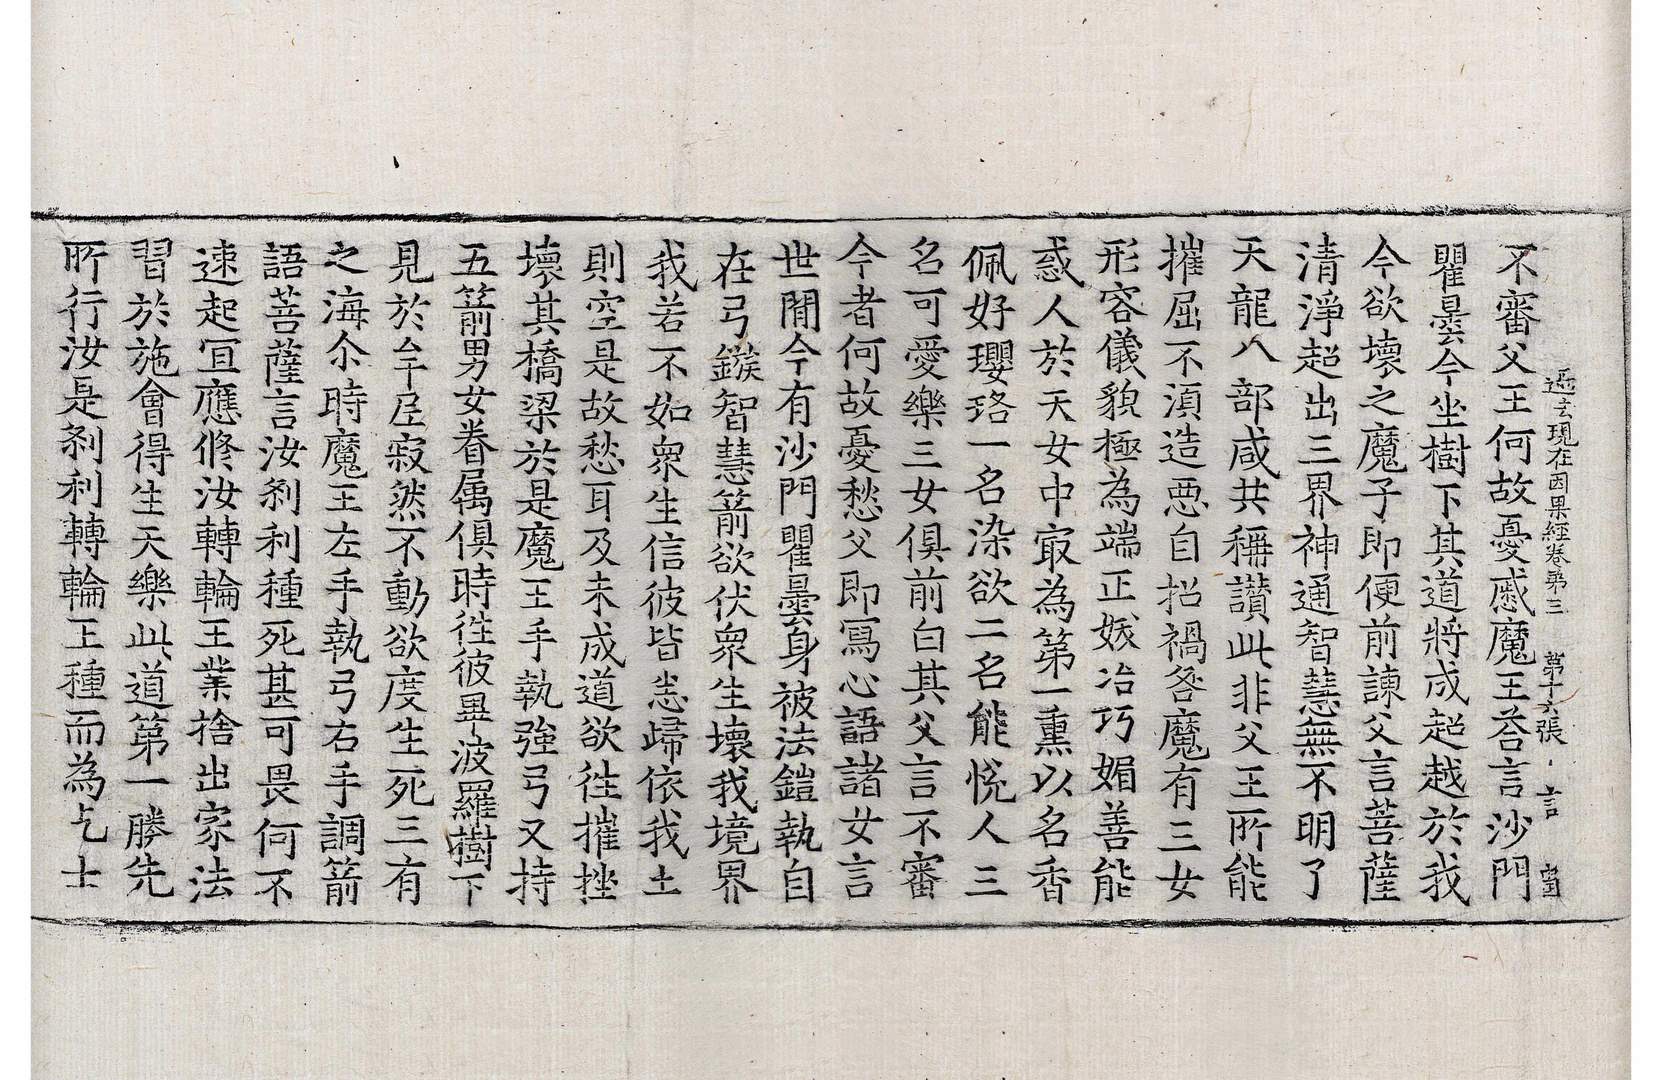 過去現在因果經卷第三 第十六張 言
不審父王何故憂慼魔王荅言沙門
瞿曇今坐樹下其道將成超越於我
今欲壞之魔子即便前諫父言菩薩
清淨超出三界神通智慧無不明了
天龍八部咸共稱讃此非父王所能
摧屈不湏造惡自招禍咎魔有三女
形容儀貌極為端正妖冶巧媚善能
惑人於天女中冣為第一熏以名香
佩好瓔珞一名染欲二名能悅人三
名可愛樂三女俱前白其父言不審
今者何故憂愁父即寫心語諸女言
世閒今有沙門瞿曇身被法鎧執自
在弓鏃智慧箭欲伏衆生壞我境界
我若不如衆生信彼皆悉歸依我土
則空是故愁耳及未成道欲徃摧挫
壞其橋梁於是魔王手執強弓又持
五箭男女眷属俱時徃彼畢波羅樹下
見於牟尼寂然不動欲度生死三有
之海尒時魔王左手執弓右手調箭
語菩薩言汝刹利種死甚可畏何不
速起宜應修汝轉輪王業捨出家法
習於施會得生天樂此道第一勝先
所行汝是刹利轉輪王種而為乞士